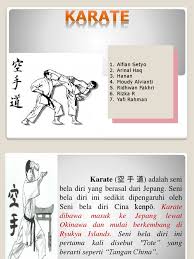 KARATE
空手道
1. Alfian Setyo
2. Arinal Haq
3. Hanan
4. Houdy Alvianti
5. Ridhwan Fakhri
6. Rizka R
7. Yafi Rahman
空手道
Karate (空 手 道) adalah seni
bela diri yang berasal dari Jepang. Seni
bela diri ini sedikit dipengaruhi oleh
Seni bela diri Cina kenpō. Karate
dibawa masuk ke Jepang lewat
Okinawa dan mulai berkembang di
Ryukyu Islands. Seni bela diri ini
pertama kali disebut "Tote" yang
berarti seperti "Tangan China".